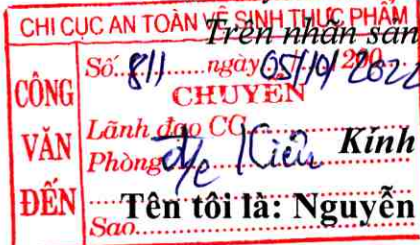 CHI CỤC AN TOÀN VỆ SINH THỰC PHẨM
Trên nhãn sản
CÔNG VĂN ĐẾN
Số 811 ngày 05/10/2022
CHUYỂN
Lãnh đạo CC
Phòng Kiều
Kính
Tên tôi là: Nguyễn
Sao